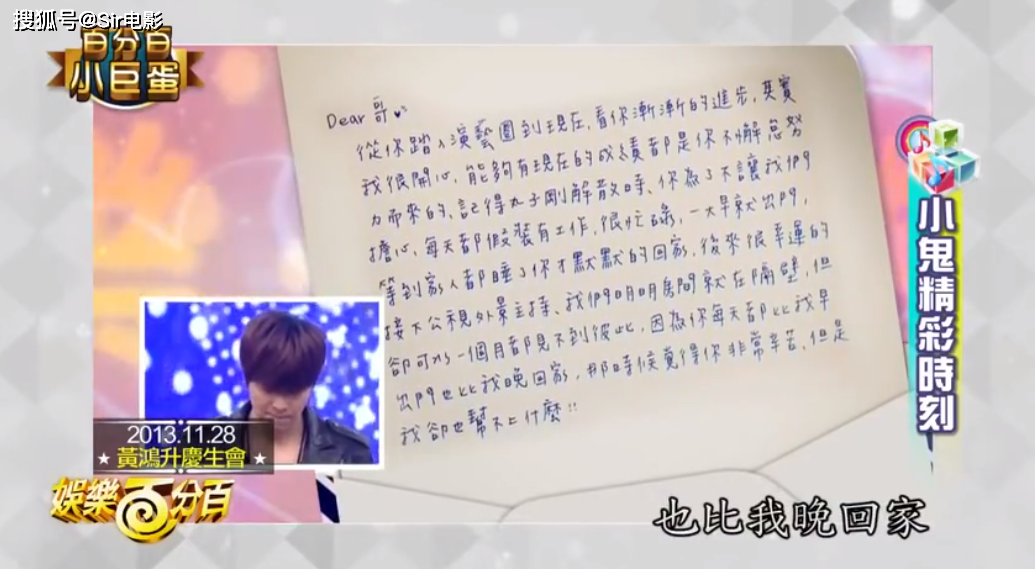 搜狐号@Sir电影
百分百
小巨蛋
Dear 哥
從你踏入演藝圈到現在，看你漸漸的進步，其實
我很開心，能夠有現在的成績都是你不懈怠努
力而來的、記得丸子剛解散時、你為了不讓我們
擔心，每天都假裝有工作，很忙碌，一大早就出門，
等到家人都睡了你才默默的回家，後來很幸運的
接下公視外景主持、我們明明房間就在隔壁，但
卻可以一個月都見不到彼此，因為你每天都比我早
出門也比我晚回家，那時候覺得你非常辛苦，但是
我卻也幫不上什麼!!
小鬼精彩時刻
2013.11.28
★黃鴻升慶生會★
娛樂百分百
也比我晚回家